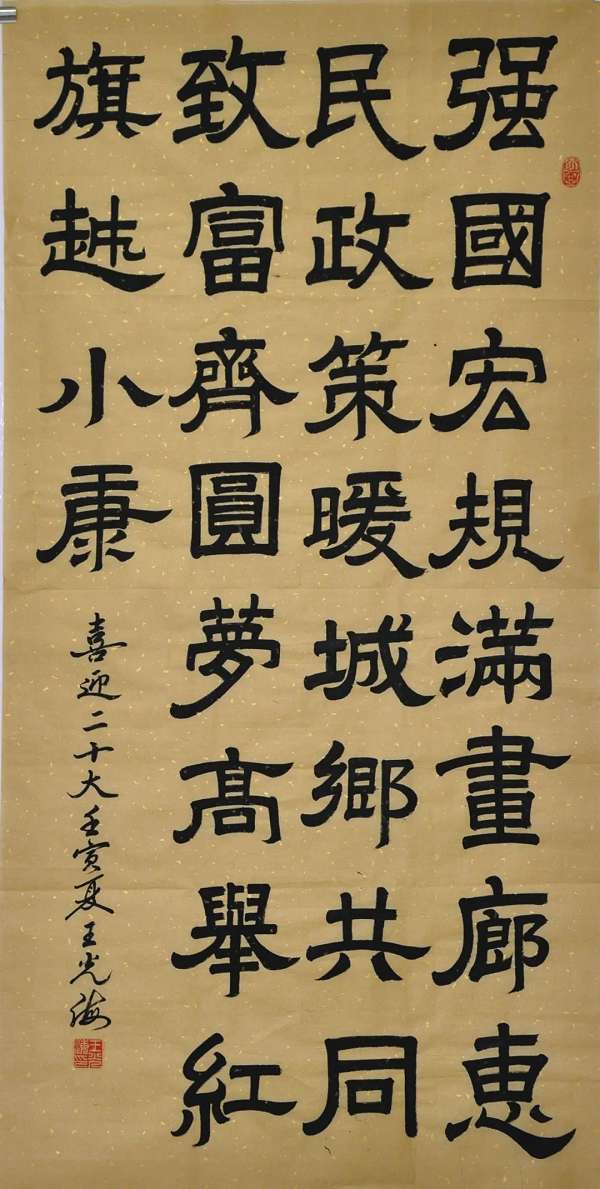 强國宏規滿畫廊惠
民政策暖城鄉共同
致富齊圓夢高舉紅
旗越小康
喜迎二十大壬寅夏王光海